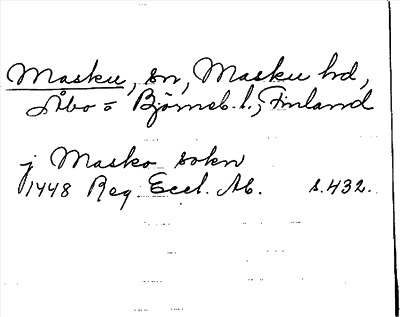 Masku, sn, Masku hd,
Åbo = Björneb. l., Finland
j Masko sokn
1448 Reg. Eccl. Ab. s. 432.